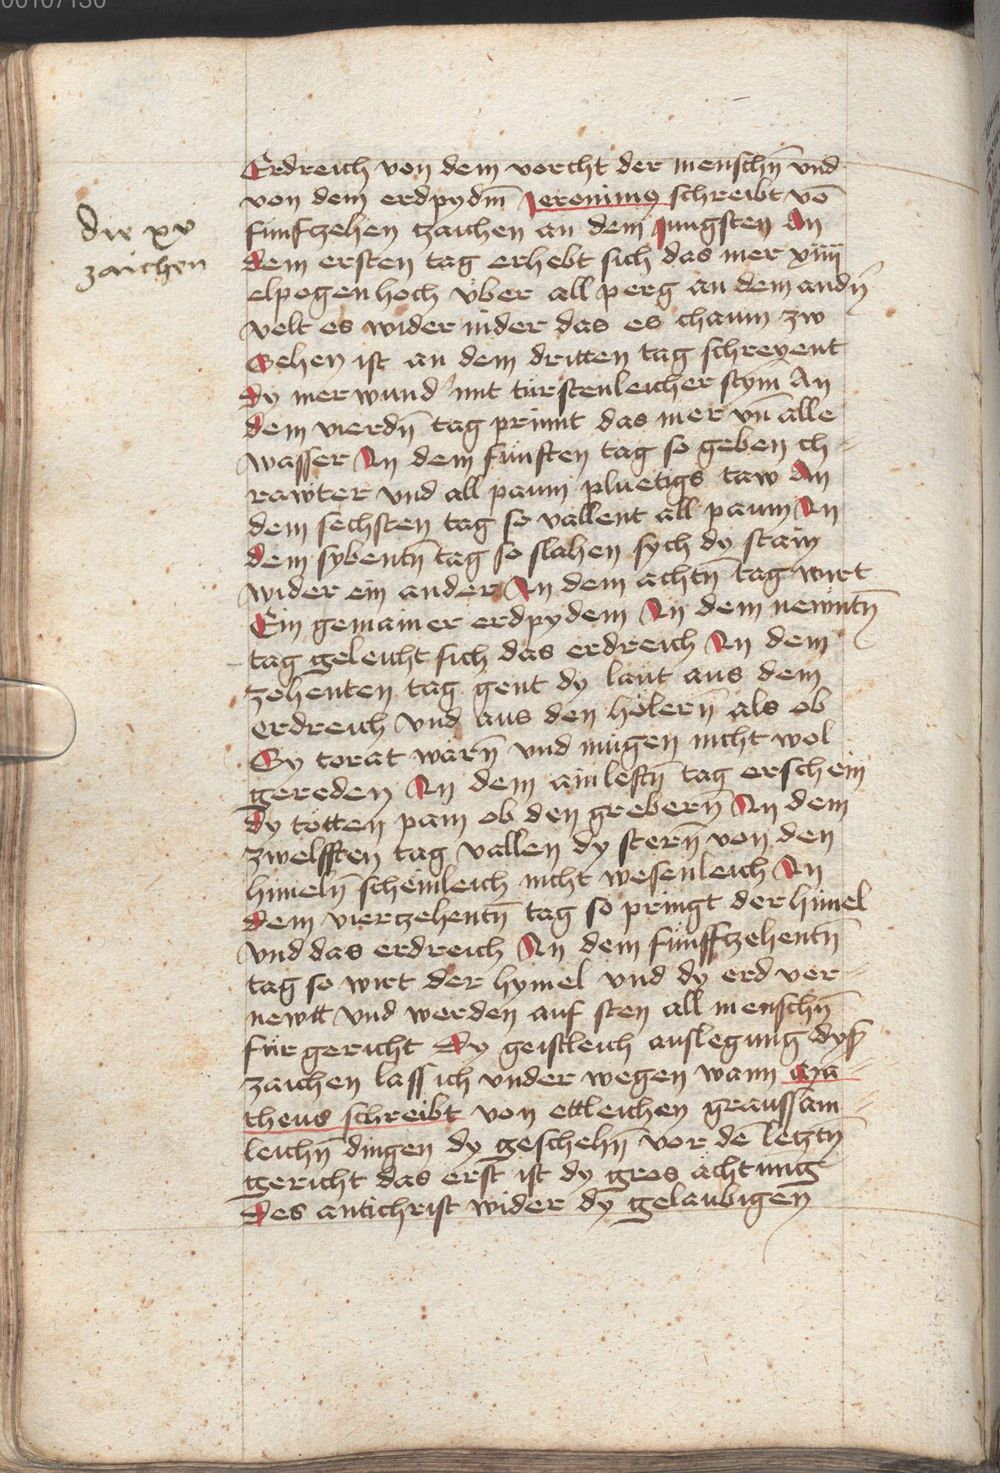 00107150
die xv
zaichen
Erdreich von dem vorcht der menschn̄ vnd
von dem erdpydm̄ Jeronimus schreibt vō
funfczehen tzaichen an dem Jungsten An
dem ersten tag erhebt sich das mer xiiii
elpogen hoch vber all perg an dem andn̄
velt es wider nider das es chaum zw
Sehen ist an dem dritten tag schreyent
Dy merwund mit türstenleicher stym An
dem vierdn̄ tag prinnt das mer vn̄ alle
wasser An dem fünften tag so geben ch-
rawter vnd all paum pluetigs taw An
dem sechsten tag so vallent all paum An
dem sybentn̄ tag so slahen sych dy stain
wider ein ander An dem achtn̄ tag wirt
Ein gemainer erdpydem An dem newntn̄
tag geleicht sich das erdreich An dem
zehenten tag gent dy laut aus dem
erdreich vnd aus den hölern̄ als ob
Sy torat warn̄ vnd mugen nicht wol
gereden An dem ainleftn̄ tag erschein
dy totten pain ob den grebern̄ An dem
zwelfften tag vallen dy stern̄ von den
himeln̄ scheinleich nicht wesenleich An
dem vierzehentn̄ tag so pringt der himel
vnd das erdreich An dem funffzehentn̄
tag so wirt der hymel vnd dy erd ver-
newtt vnd werden auf sten all menschn̄
für gericht Dy geistleich auslegung dyser
zaichen lass ich vnder wegen wann Ma-
theus schreibt von ettleichen graussam-
leichn̄ dingen dy geschehn̄ vor dē letztn̄
gericht das erst ist dy gros achtung
Des antichrist wider dy gelaubigen